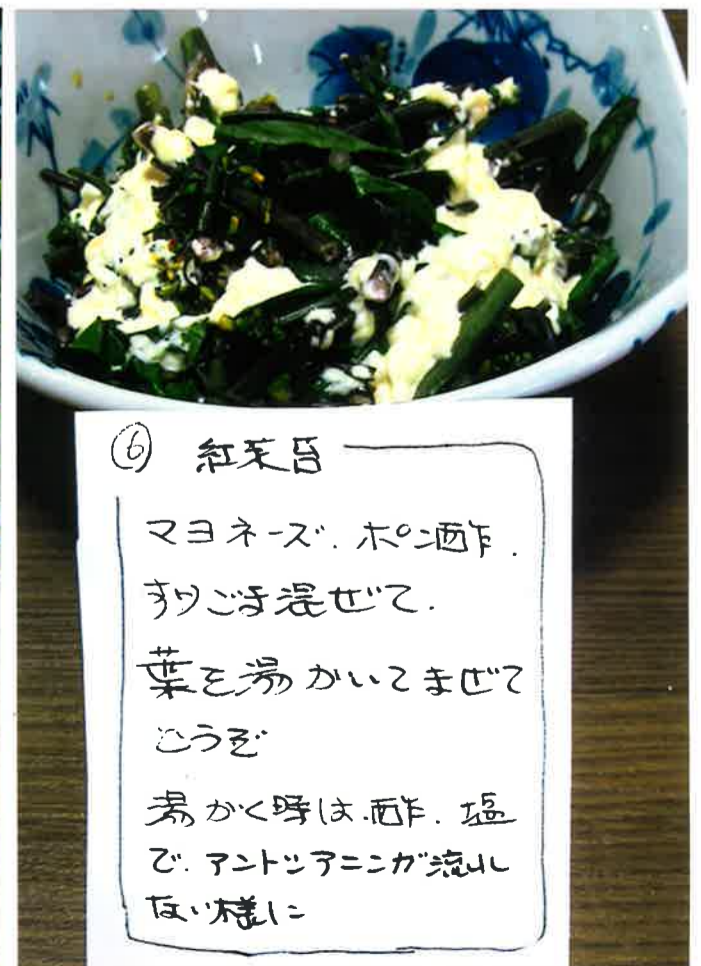 ⑥ 紅菜苔
マヨネーズ、ポン酢、
すりごま混ぜて、
葉を湯がいてまぜて
どうぞ
湯がく時は、酢、塩
で、アントシアニンが流れ
ない様に